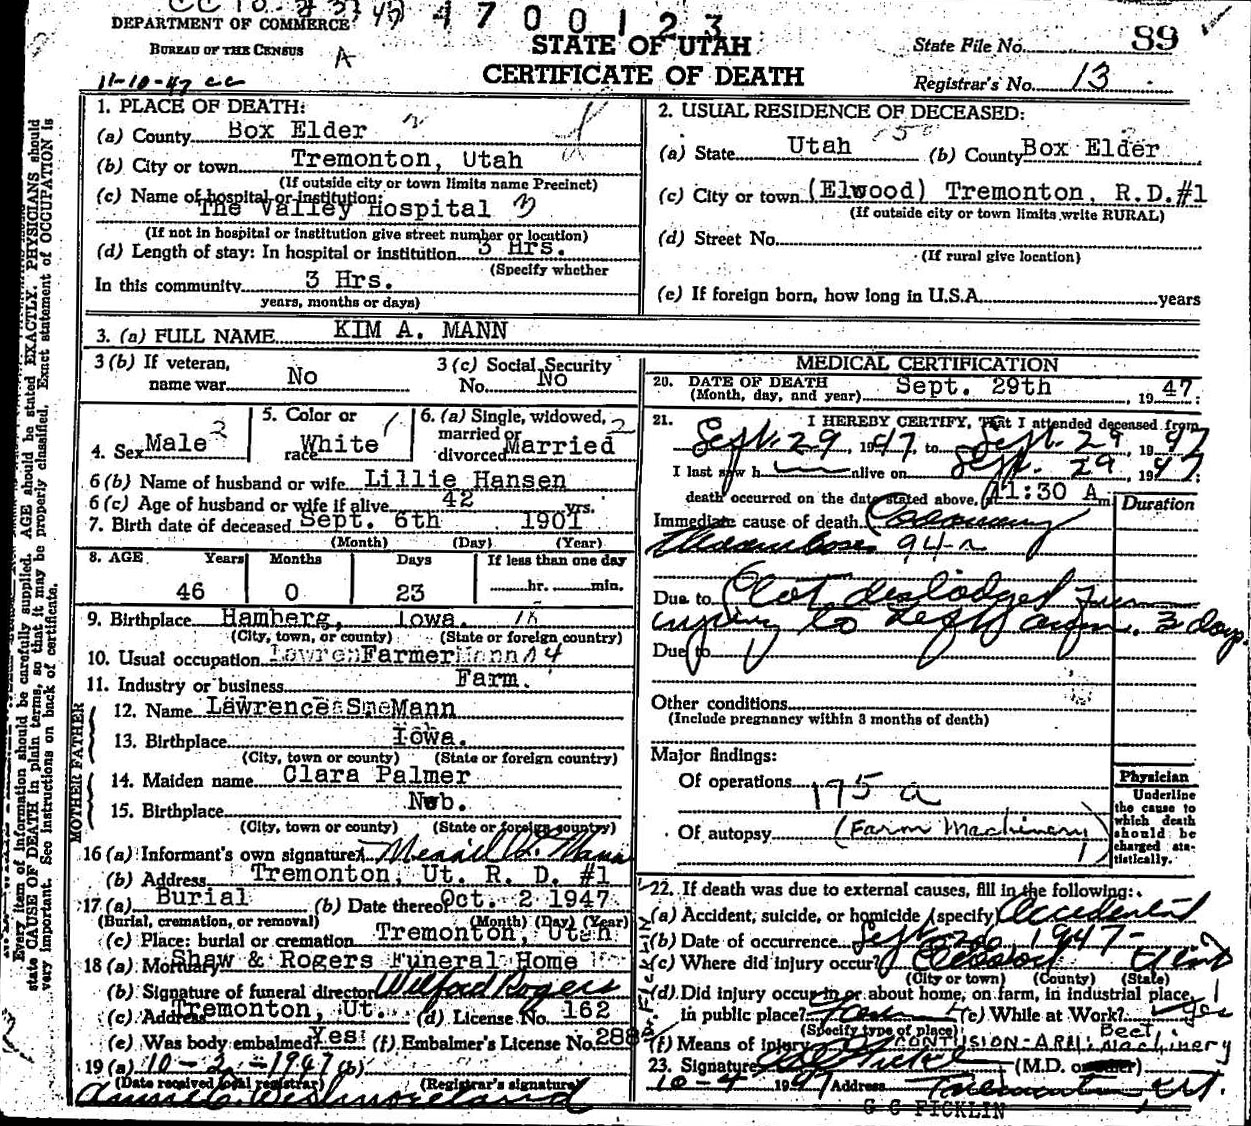 4700123
DEPARTMENT OF COMMERCE
BUREAU OF THE CENSUS
A
11-10-47 cc
STATE OF UTAH
CERTIFICATE OF DEATH
State File No. 89
Registrar's No. 13
1. PLACE OF DEATH:
(a) County Box Elder
(b) City or town Tremonton, Utah
(If outside city or town limits name Precinct)
(c) Name of hospital or institution:
The Valley Hospital
(If not in hospital or institution give street number or location)
(d) Length of stay: In hospital or institution 3 Hrs.
(Specify whether
In this community 3 Hrs.
years, months or days)
2. USUAL RESIDENCE OF DECEASED:
(a) State Utah (b) County Box Elder
(c) City or town (Elwood) Tremonton, R.D.#1
(If outside city or town limits write RURAL)
(d) Street No.
(If rural give location)
(e) If foreign born, how long in U.S.A. years
3. (a) FULL NAME KIM A. MANN
3 (b) If veteran, name war No
3 (c) Social Security No. No
4. Sex Male
5. Color or race White
6. (a) Single, widowed, married or divorced Married
6 (b) Name of husband or wife Lillie Hansen
6 (c) Age of husband or wife if alive 42 yrs.
7. Birth date of deceased Sept. 6th 1901
(Month) (Day) (Year)
8. AGE Years Months Days If less than one day
46 0 23 hr. min.
9. Birthplace Hamberg, Iowa.
(City, town, or county) (State or foreign country)
10. Usual occupation Farmer
11. Industry or business Farm.
FATHER
12. Name Lawrence Mann
13. Birthplace Iowa.
(City, town or county) (State or foreign country)
MOTHER
14. Maiden name Clara Palmer
15. Birthplace Neb.
(City, town or county) (State or foreign country)
16 (a) Informant's own signature Merrill L. Mann
(b) Address Tremonton, Ut. R. D. #1
17 (a) Burial (b) Date thereof Oct. 2 1947
(Burial, cremation, or removal) (Month) (Day) (Year)
(c) Place: burial or cremation Tremonton, Utah
18 (a) Mortuary Shaw & Rogers Funeral Home
(b) Signature of funeral director Wilford Rogers
(c) Address Tremonton, Ut. (d) License No. 162
(e) Was body embalmed? Yes (f) Embalmer's License No. 288
19 (a) 10-2-1947 (b)
(Date received local registrar) (Registrar's signature)
Annie C. Westmoreland
MEDICAL CERTIFICATION
20. DATE OF DEATH
(Month, day, and year) Sept. 29th, 1947
21. I HEREBY CERTIFY, That I attended deceased from
Sept. 29, 1947, to Sept. 29, 1947
I last saw h alive on Sept. 29, 1947
death occurred on the date stated above, at 11:30 A m.
Duration
Immediate cause of death Coronary
Thrombosis 94-a
Due to Clot dislodged from
injury to left arm. 3 days
Due to
Other conditions
(Include pregnancy within 3 months of death)
Major findings:
Of operations 195 a
Of autopsy (Farm Machinery)
Physician
Underline the cause to which death should be charged statistically.
22. If death was due to external causes, fill in the following:
(a) Accident, suicide, or homicide (specify) Accidental
(b) Date of occurrence Sept 1947
(c) Where did injury occur? Utah
(City or town) (County) (State)
(d) Did injury occur in or about home, on farm, in industrial place,
in public place? (e) While at Work? yes
(Specify type of place)
(f) Means of injury CONTUSION-ARM: Beet Machinery
23. Signature (M.D. or other)
10-4 1947 Address Tremonton Ut.
G C FICKLIN
Every item of information should be carefully supplied. AGE should be stated EXACTLY. PHYSICIANS should
state CAUSE OF DEATH in plain terms, so that it may be properly classified. Exact statement of OCCUPATION is
very important. See instructions on back of certificate.